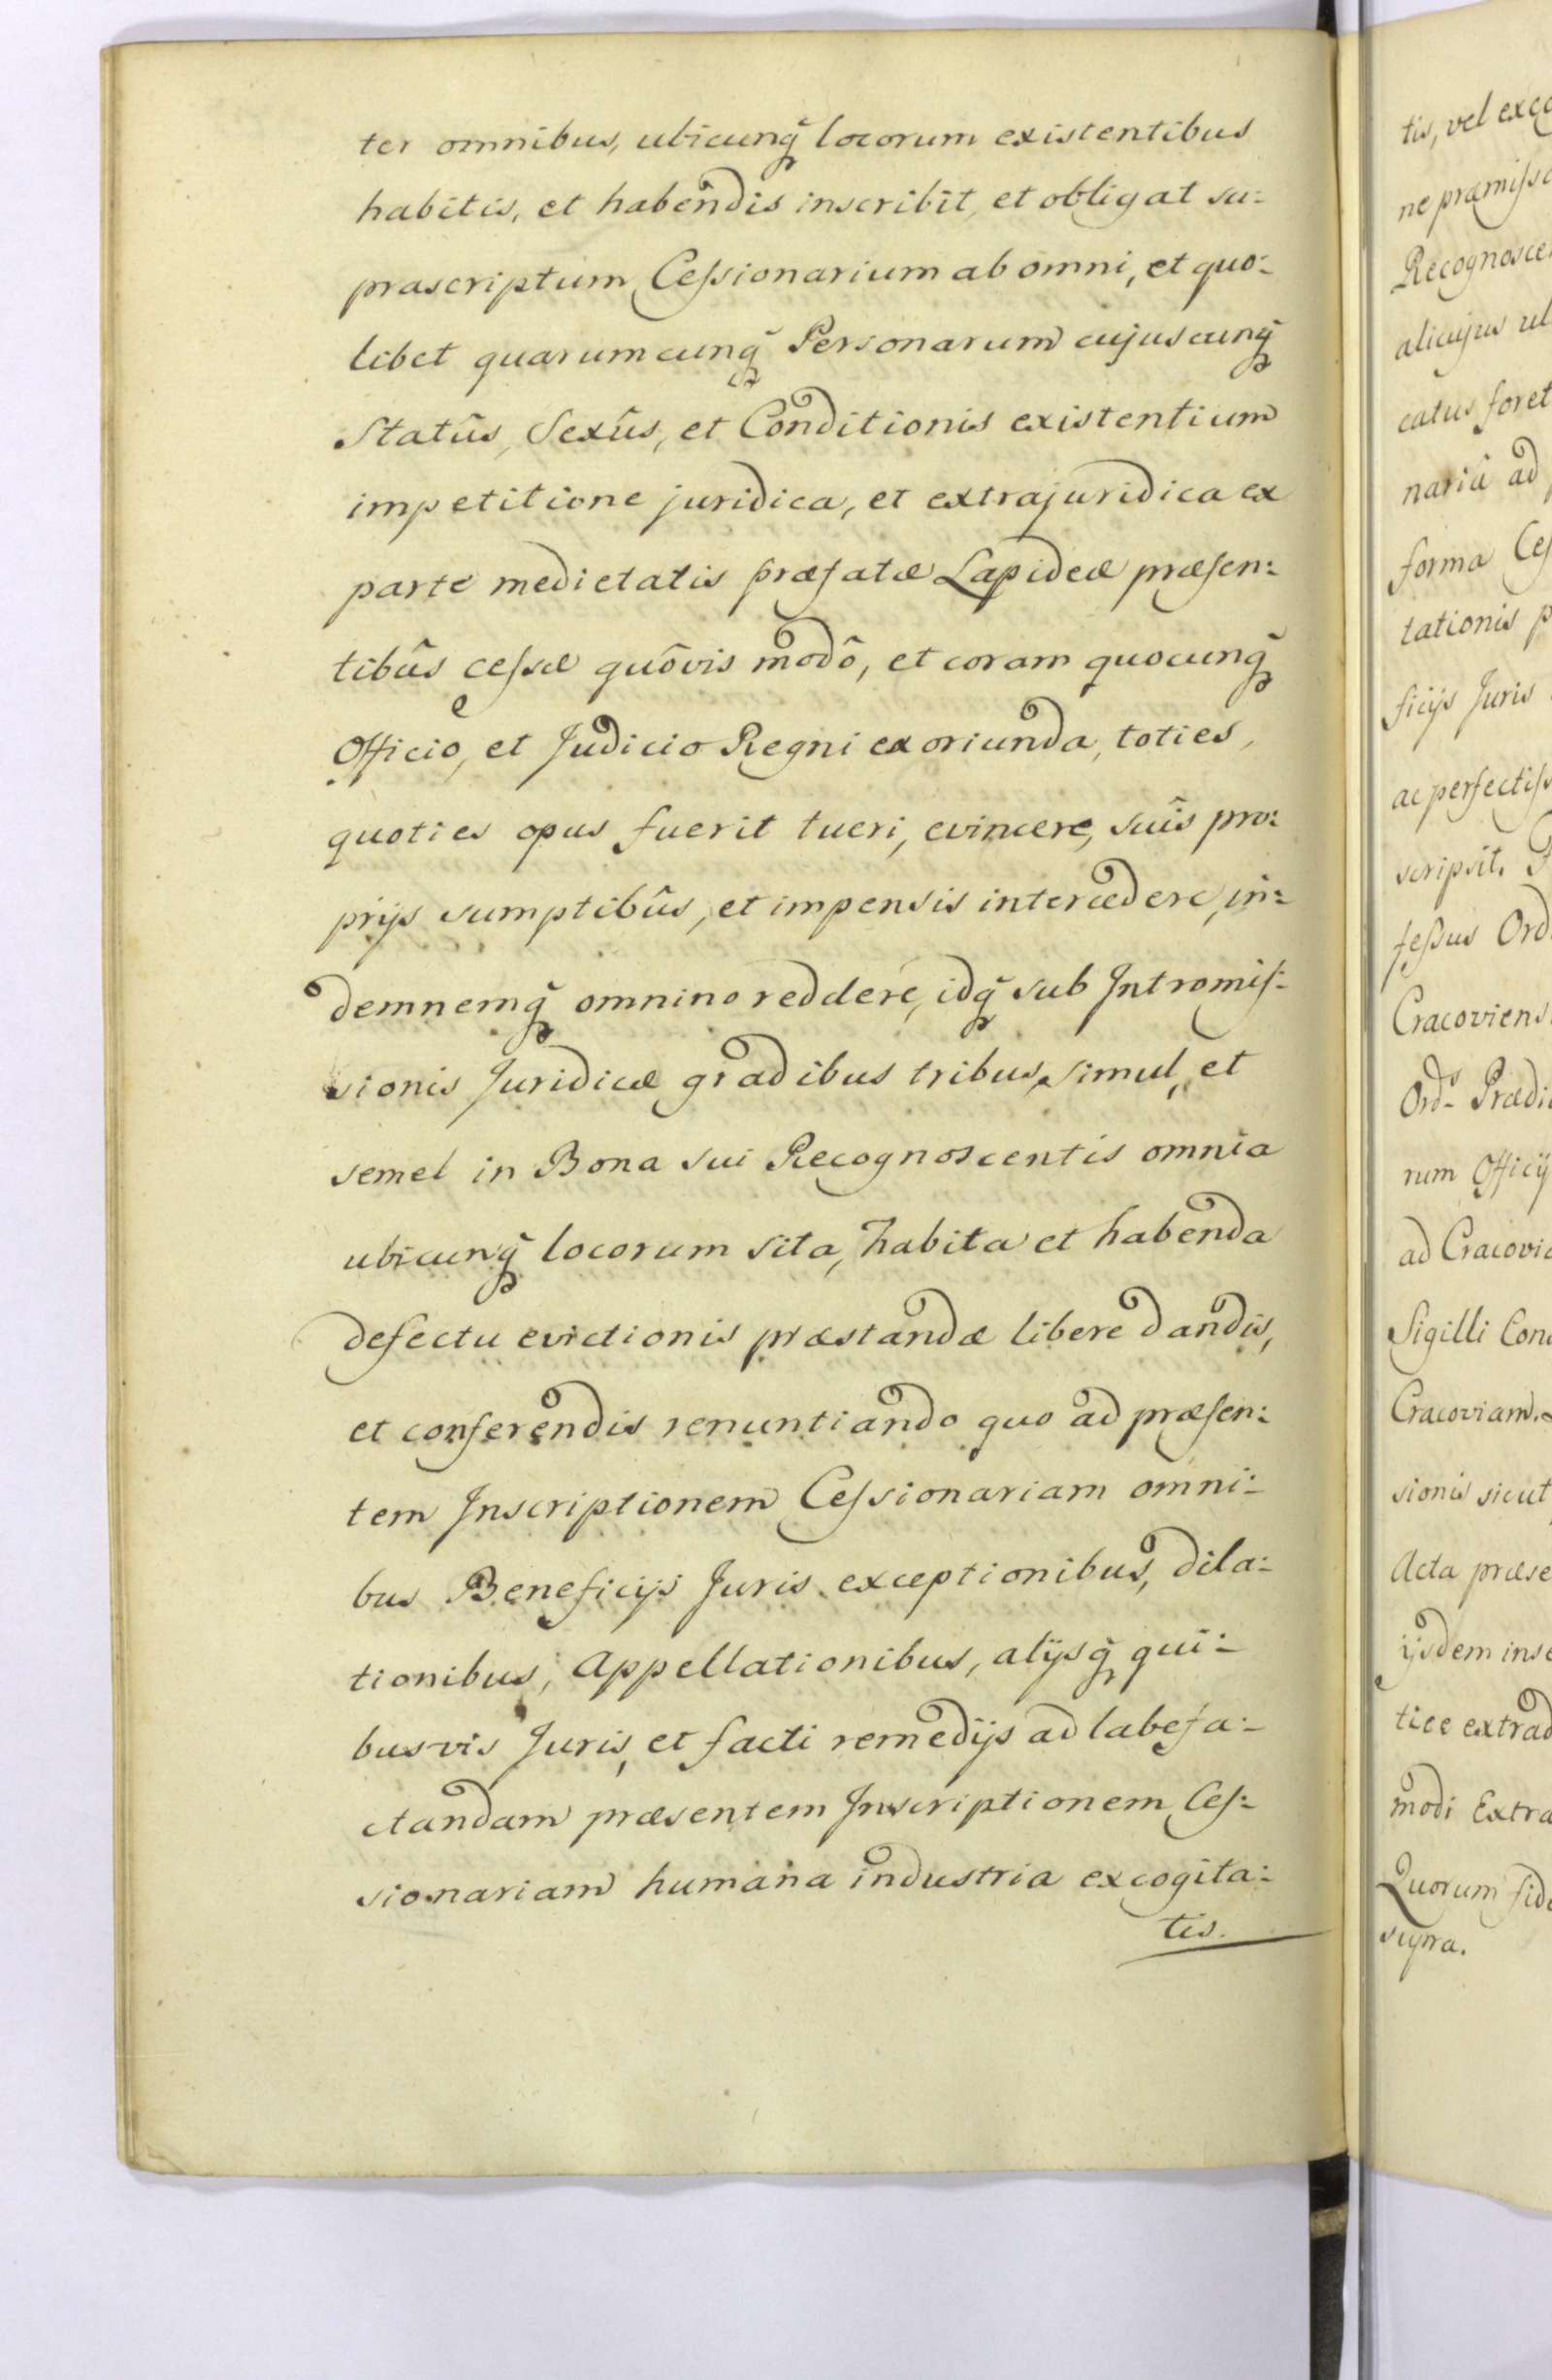 ter omnibus, ubicunq̃ locorum existentibus
habitis, et habendis inscribit, et obligat su:
prascriptum Ceſsionarium ab omni, et quo:
libet quarumcunq̃ Personarum cujuscunq̃
Statûs, Sexûs, et Conditionis existentium
impetitione juridica, et extrajuridica ex
parte medietatis præfatæ Lapideæ præſen:
tibûs ceſsæ quôvis modô, et coram quocunq̃
Officio, et Judicio Regni exoriunda, toties,
quoties opus fuerit tueri, evincere, suis pro:
prijs sumptibûs, et impensis intercedere, in:
demnemq̃ omnino reddere, idq̃ sub Intromiſ:
sionis Juridicæ gradibus tribus, simul, et
semel in Bona sui Recognoscentis omnia
ubicunq̃ locorum sita, habita et habenda
defectu evictionis præstandæ libere dandis,
et conferendis renuntiando quo ad præſen:
tem Inscriptionem Ceſsionariam omni:
bus Beneficijs Juris exceptionibus, dila:
tionibus, Appellationibus, alijsq̃ qui:
busvis Juris, et facti remedijs ad labefa:
ctandam præsentem Inscriptionem Ceſ:
sionariam humana industria excogita:
tis.
tis, vel exce
ne præmiſsa
Recognosce
alicujus ul
catus foret
nariâ ad
forma Ceſ
tationis p
ficijs Juris
ac perfectiſs
scripsit.
feſsus Ord
Cracoviens
Ord. Prædi
rum Officij
ad Cracovi
Sigilli Con
Cracoviam.
sionis sicut
Acta præse
ijsdem inse
tice extrad
modi Extra
Quorum fid
supra.